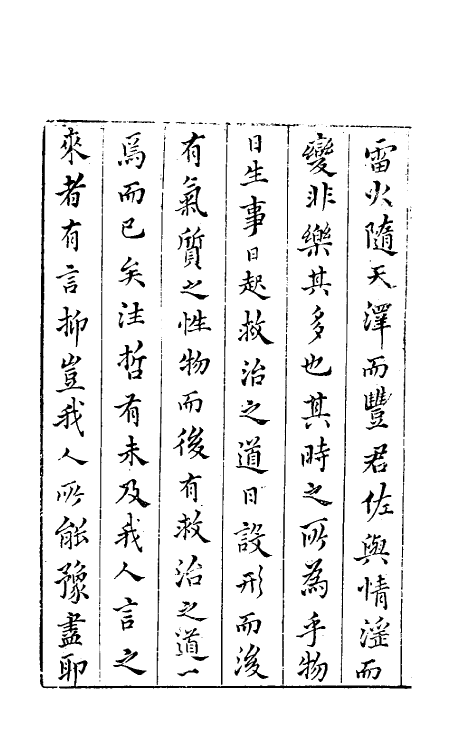 雷火隨天澤而豐君佐與情滛而
變非樂其多也其時之所為乎物
日生事日起救治之道日設形而後
有氣質之性物而後有救治之道一
焉而已矣注哲有未及我人言之
來者有言抑豈我人所能豫盡耶